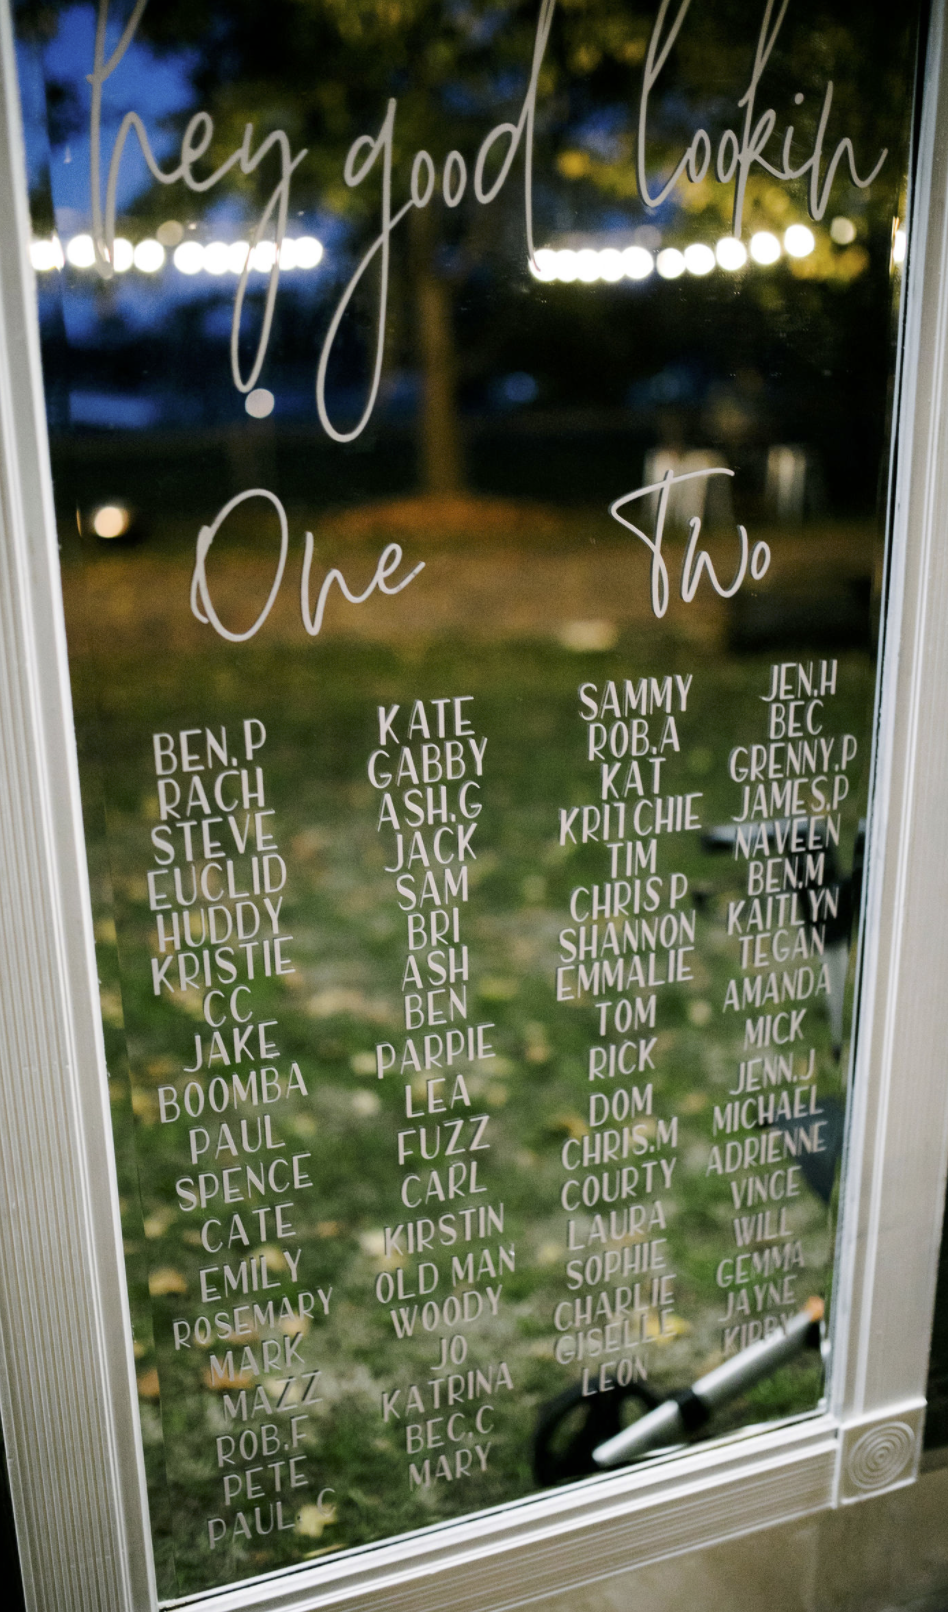 hey good lookin
One
BEN.P
RACH
STEVE
EUCLID
HUDDY
KRISTIE
CC
JAKE
BOOMBA
PAUL
SPENCE
CATE
EMILY
ROSEMARY
MARK
MAZZ
ROB.F
PETE
PAUL.C
KATE
GABBY
ASH.G
JACK
SAM
BRI
ASH
BEN
PARPIE
LEA
FUZZ
CARL
KIRSTIN
OLD MAN
WOODY
JO
KATRINA
BEC.C
MARY
Two
SAMMY
ROB.A
KAT
KRITCHIE
TIM
CHRIS P
SHANNON
EMMALIE
TOM
RICK
DOM
CHRIS.M
COURTY
LAURA
SOPHIE
CHARLIE
GISELLE
LEON
JEN.H
BEC
GRENNY.P
JAMES.P
NAVEEN
BEN.M
KAITLYN
TEGAN
AMANDA
MICK
JENN.J
MICHAEL
ADRIENNE
VINCE
WILL
GEMMA
JAYNE
KIRBY